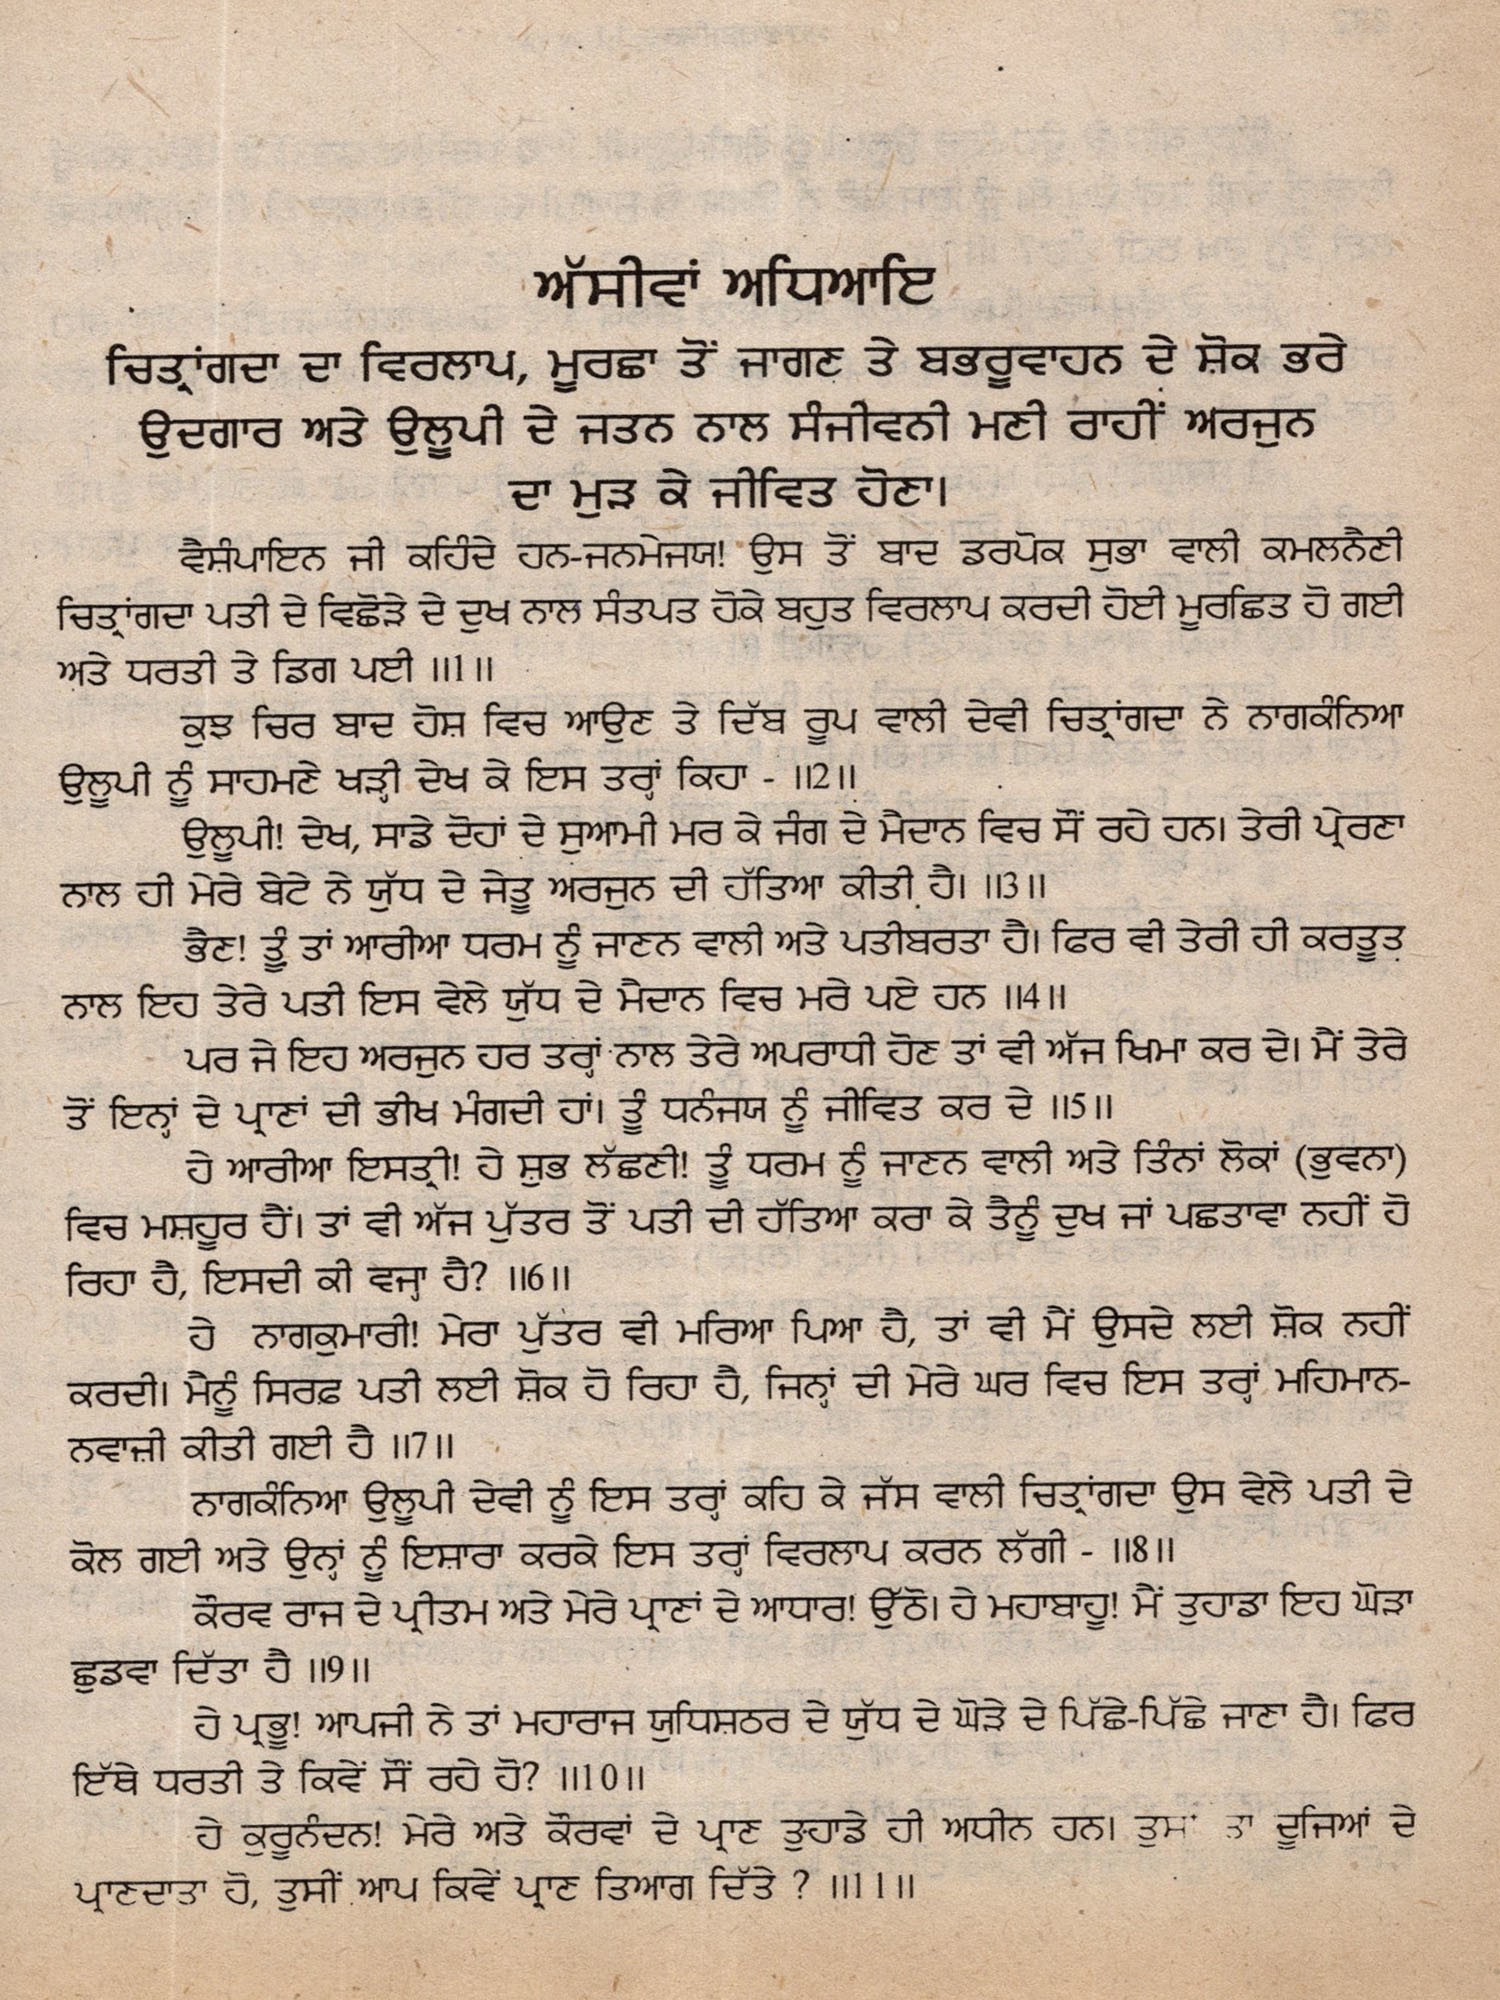 ਅੱਸੀਵਾਂ ਅਧਿਆਇ
ਚਿਤ੍ਰਾਂਗਦਾ ਦਾ ਵਿਰਲਾਪ, ਮੂਰਛਾ ਤੋਂ ਜਾਗਣ ਤੇ ਬਭਰੂਵਾਹਨ ਦੇ ਸ਼ੋਕ ਭਰੇ
ਉਦਗਾਰ ਅਤੇ ਉਲੂਪੀ ਦੇ ਜਤਨ ਨਾਲ ਸੰਜੀਵਨੀ ਮਣੀ ਰਾਹੀਂ ਅਰਜੁਨ
ਦਾ ਮੁੜ ਕੇ ਜੀਵਿਤ ਹੋਣਾ।
ਵੈਸ਼ੰਪਾਇਨ ਜੀ ਕਹਿੰਦੇ ਹਨ-ਜਨਮੇਜਯ! ਉਸ ਤੋਂ ਬਾਦ ਡਰਪੋਕ ਸੁਭਾ ਵਾਲੀ ਕਮਲਨੈਣੀ
ਚਿਤ੍ਰਾਂਗਦਾ ਪਤੀ ਦੇ ਵਿਛੋੜੇ ਦੇ ਦੁਖ ਨਾਲ ਸੰਤਪਤ ਹੋਕੇ ਬਹੁਤ ਵਿਰਲਾਪ ਕਰਦੀ ਹੋਈ ਮੂਰਛਿਤ ਹੋ ਗਈ
ਅਤੇ ਧਰਤੀ ਤੇ ਡਿਗ ਪਈ ॥1॥
ਕੁਝ ਚਿਰ ਬਾਦ ਹੋਸ਼ ਵਿਚ ਆਉਣ ਤੇ ਦਿੱਬ ਰੂਪ ਵਾਲੀ ਦੇਵੀ ਚਿਤ੍ਰਾਂਗਦਾ ਨੇ ਨਾਗਕੰਨਿਆ
ਉਲੂਪੀ ਨੂੰ ਸਾਹਮਣੇ ਖੜ੍ਹੀ ਦੇਖ ਕੇ ਇਸ ਤਰ੍ਹਾਂ ਕਿਹਾ - ॥2॥
ਉਲੂਪੀ! ਦੇਖ, ਸਾਡੇ ਦੋਹਾਂ ਦੇ ਸੁਆਮੀ ਮਰ ਕੇ ਜੰਗ ਦੇ ਮੈਦਾਨ ਵਿਚ ਸੌਂ ਰਹੇ ਹਨ। ਤੇਰੀ ਪ੍ਰੇਰਣਾ
ਨਾਲ ਹੀ ਮੇਰੇ ਬੇਟੇ ਨੇ ਯੁੱਧ ਦੇ ਜੇਤੂ ਅਰਜੁਨ ਦੀ ਹੱਤਿਆ ਕੀਤੀ ਹੈ। ॥3॥
ਭੈਣ! ਤੂੰ ਤਾਂ ਆਰੀਆ ਧਰਮ ਨੂੰ ਜਾਣਨ ਵਾਲੀ ਅਤੇ ਪਤੀਬਰਤਾ ਹੈ। ਫਿਰ ਵੀ ਤੇਰੀ ਹੀ ਕਰਤੂਤ
ਨਾਲ ਇਹ ਤੇਰੇ ਪਤੀ ਇਸ ਵੇਲੇ ਯੁੱਧ ਦੇ ਮੈਦਾਨ ਵਿਚ ਮਰੇ ਪਏ ਹਨ ॥4॥
ਪਰ ਜੇ ਇਹ ਅਰਜੁਨ ਹਰ ਤਰ੍ਹਾਂ ਨਾਲ ਤੇਰੇ ਅਪਰਾਧੀ ਹੋਣ ਤਾਂ ਵੀ ਅੱਜ ਖਿਮਾ ਕਰ ਦੇ। ਮੈਂ ਤੇਰੇ
ਤੋਂ ਇਨ੍ਹਾਂ ਦੇ ਪ੍ਰਾਣਾਂ ਦੀ ਭੀਖ ਮੰਗਦੀ ਹਾਂ। ਤੂੰ ਧਨੰਜਯ ਨੂੰ ਜੀਵਿਤ ਕਰ ਦੇ ॥5॥
ਹੇ ਆਰੀਆ ਇਸਤ੍ਰੀ! ਹੇ ਸ਼ੁਭ ਲੱਛਣੀ! ਤੂੰ ਧਰਮ ਨੂੰ ਜਾਣਨ ਵਾਲੀ ਅਤੇ ਤਿੰਨਾਂ ਲੋਕਾਂ (ਭੁਵਨਾ)
ਵਿਚ ਮਸ਼ਹੂਰ ਹੈਂ। ਤਾਂ ਵੀ ਅੱਜ ਪੁੱਤਰ ਤੋਂ ਪਤੀ ਦੀ ਹੱਤਿਆ ਕਰਾ ਕੇ ਤੈਨੂੰ ਦੁਖ ਜਾਂ ਪਛਤਾਵਾ ਨਹੀਂ ਹੋ
ਰਿਹਾ ਹੈ, ਇਸਦੀ ਕੀ ਵਜ੍ਹਾ ਹੈ? ॥6॥
ਹੇ ਨਾਗਕੁਮਾਰੀ! ਮੇਰਾ ਪੁੱਤਰ ਵੀ ਮਰਿਆ ਪਿਆ ਹੈ, ਤਾਂ ਵੀ ਮੈਂ ਉਸਦੇ ਲਈ ਸ਼ੋਕ ਨਹੀਂ
ਕਰਦੀ। ਮੈਨੂੰ ਸਿਰਫ਼ ਪਤੀ ਲਈ ਸ਼ੋਕ ਹੋ ਰਿਹਾ ਹੈ, ਜਿਨ੍ਹਾਂ ਦੀ ਮੇਰੇ ਘਰ ਵਿਚ ਇਸ ਤਰ੍ਹਾਂ ਮਹਿਮਾਨ-
ਨਵਾਜ਼ੀ ਕੀਤੀ ਗਈ ਹੈ ॥7॥
ਨਾਗਕੰਨਿਆ ਉਲੂਪੀ ਦੇਵੀ ਨੂੰ ਇਸ ਤਰ੍ਹਾਂ ਕਹਿ ਕੇ ਜੱਸ ਵਾਲੀ ਚਿਤ੍ਰਾਂਗਦਾ ਉਸ ਵੇਲੇ ਪਤੀ ਦੇ
ਕੋਲ ਗਈ ਅਤੇ ਉਨ੍ਹਾਂ ਨੂੰ ਇਸ਼ਾਰਾ ਕਰਕੇ ਇਸ ਤਰ੍ਹਾਂ ਵਿਰਲਾਪ ਕਰਨ ਲੱਗੀ - ॥8॥
ਕੌਰਵ ਰਾਜ ਦੇ ਪ੍ਰੀਤਮ ਅਤੇ ਮੇਰੇ ਪ੍ਰਾਣਾਂ ਦੇ ਆਧਾਰ! ਉੱਠੋ। ਹੇ ਮਹਾਬਾਹੂ! ਮੈਂ ਤੁਹਾਡਾ ਇਹ ਘੋੜਾ
ਛੁਡਵਾ ਦਿੱਤਾ ਹੈ ॥9॥
ਹੇ ਪ੍ਰਭੂ! ਆਪਜੀ ਨੇ ਤਾਂ ਮਹਾਰਾਜ ਯੁਧਿਸ਼ਠਰ ਦੇ ਯੁੱਧ ਦੇ ਘੋੜੇ ਦੇ ਪਿੱਛੇ-ਪਿੱਛੇ ਜਾਣਾ ਹੈ। ਫਿਰ
ਇੱਥੇ ਧਰਤੀ ਤੇ ਕਿਵੇਂ ਸੌਂ ਰਹੇ ਹੋ? ॥10॥
ਹੇ ਕੁਰੂਨੰਦਨ! ਮੇਰੇ ਅਤੇ ਕੌਰਵਾਂ ਦੇ ਪ੍ਰਾਣ ਤੁਹਾਡੇ ਹੀ ਅਧੀਨ ਹਨ। ਦੂਜਿਆਂ ਦੇ
ਪ੍ਰਾਣਦਾਤਾ ਹੋ, ਤੁਸੀਂ ਆਪ ਕਿਵੇਂ ਪ੍ਰਾਣ ਤਿਆਗ ਦਿੱਤੇ ? ॥11॥